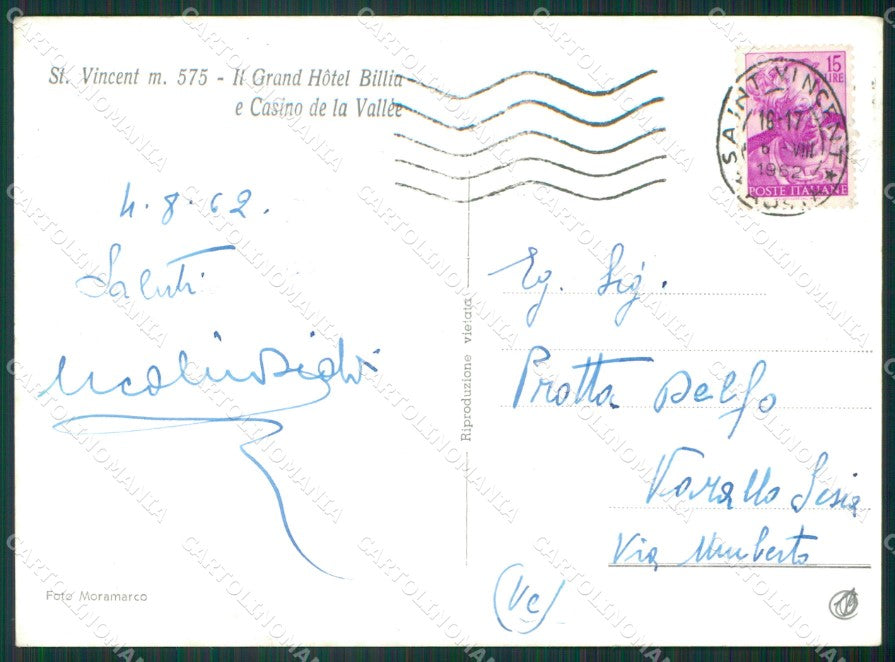 St. Vincent m. 575 - Il Grand Hôtel Billia
e Casino de la Vallée
4.8.62.
Saluti
15
LIRE
SAINT VINCENT
18-17
6 -VIII
1962
AOSTA
POSTE ITALIANE
Riproduzione vietata
Eg. Sig.
Protta Delfo
Varallo Sesia
Via Umberto
(Vc)
Foto Moramarco
CARTOLINOMANIA